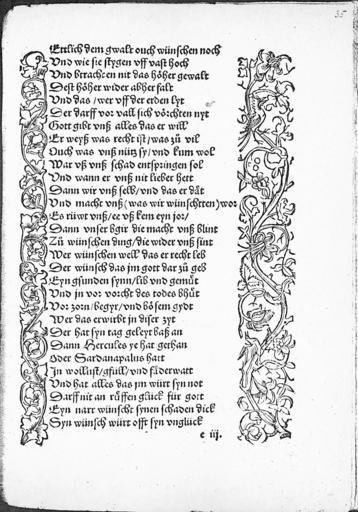 35
Ettlich dem gwalt ouch wünschen noch
Vnd wie sie stygen vff vast hoch
Vnd btrachten nit das höher gewalt
Dest höher wider abher falt
Vnd das / wer vff der erden lyt
Der darff vor vall sich vörchten nyt
Gott gibt vnß alles das er will
Er weyß was recht ist / was zů vil
Ouch was vnß nütz sy / vnd kum wol
War vß vnß schad entspringen sol
Vnd wann er vnß nit lieber hett
Dann wir vnß selb / vnd das er dät
Vnd macht vnß (was wir wünschten) wor
Es rüwt vnß / ee vß kem eyn jor /
Dann vnser bgir die macht vnß blint
Zů wünschen ding / die wider vnß sint
Wer wünschen well das er recht leb
Der wünsch das jm gott dar zů geb
Eyn gsunden synn / lib vnd gemüt
Vnd jn vor vorcht des todes bhüt
Vor zorn / begyr / vnd bösem gydt
Wer das erwirbt jn diser zyt
Der hat syn tag geleyt baß an
Dann Hercules ye hat gethan
Oder Sardanapalus hatt
Jn wollust / gfüll / vnd fäderwatt
Vnd hat alles das jm würt syn not
Darff nit an růffen glück für gott
Eyn narr wünscht synen schaden dick
Syn wünsch würt offt syn vnglück
e iij.